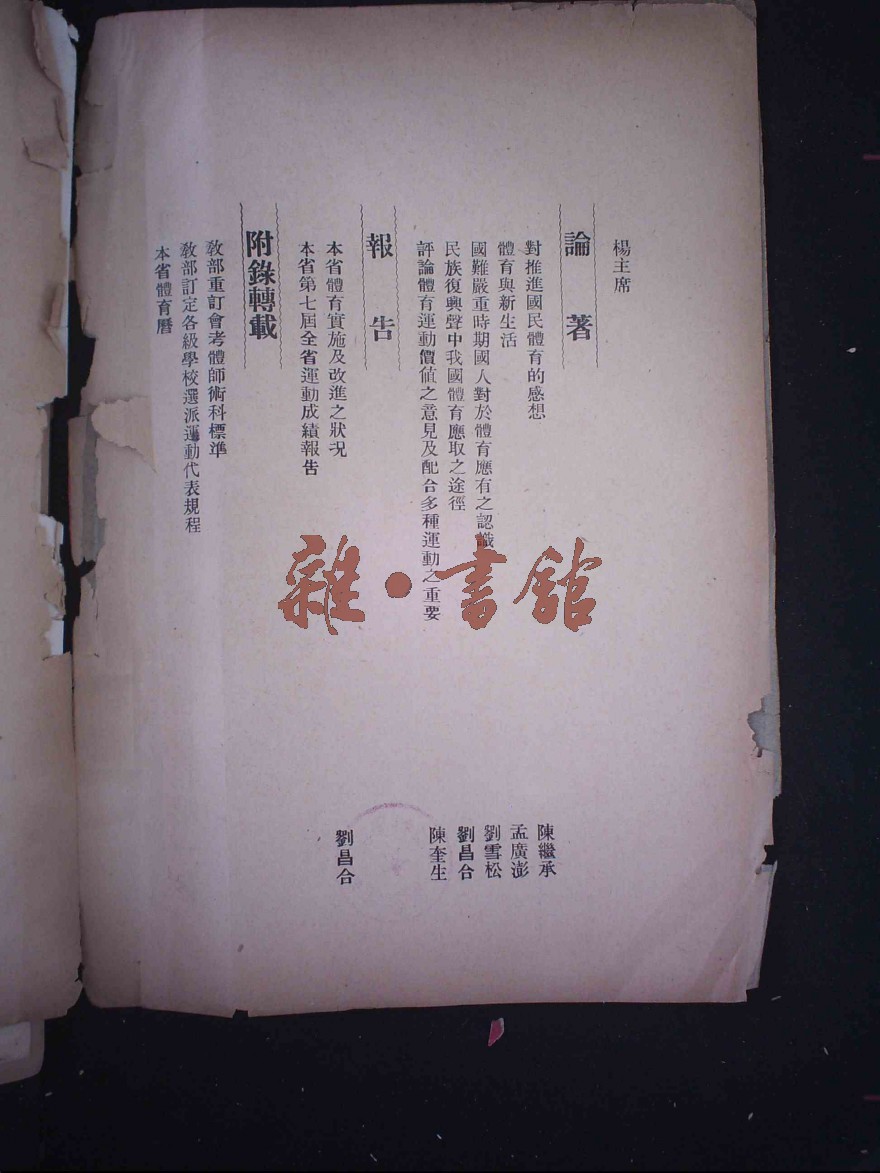 楊主席
論著
對推進國民體育的感想 陳繼承
體育與新生活 孟廣澎
國難嚴重時期國人對於體育應有之認識 劉雪松
民族復興聲中我國體育應取之途徑 劉昌合
評論體育運動價值之意見及配合多種運動之重要 陳奎生
報告
本省體育實施及改進之狀况 劉昌合
本省第七屆全省運動成績報告
附錄轉載
敎部重訂會考體師術科標準
敎部訂定各級學校選派運動代表規程
本省體育曆
雜·書館